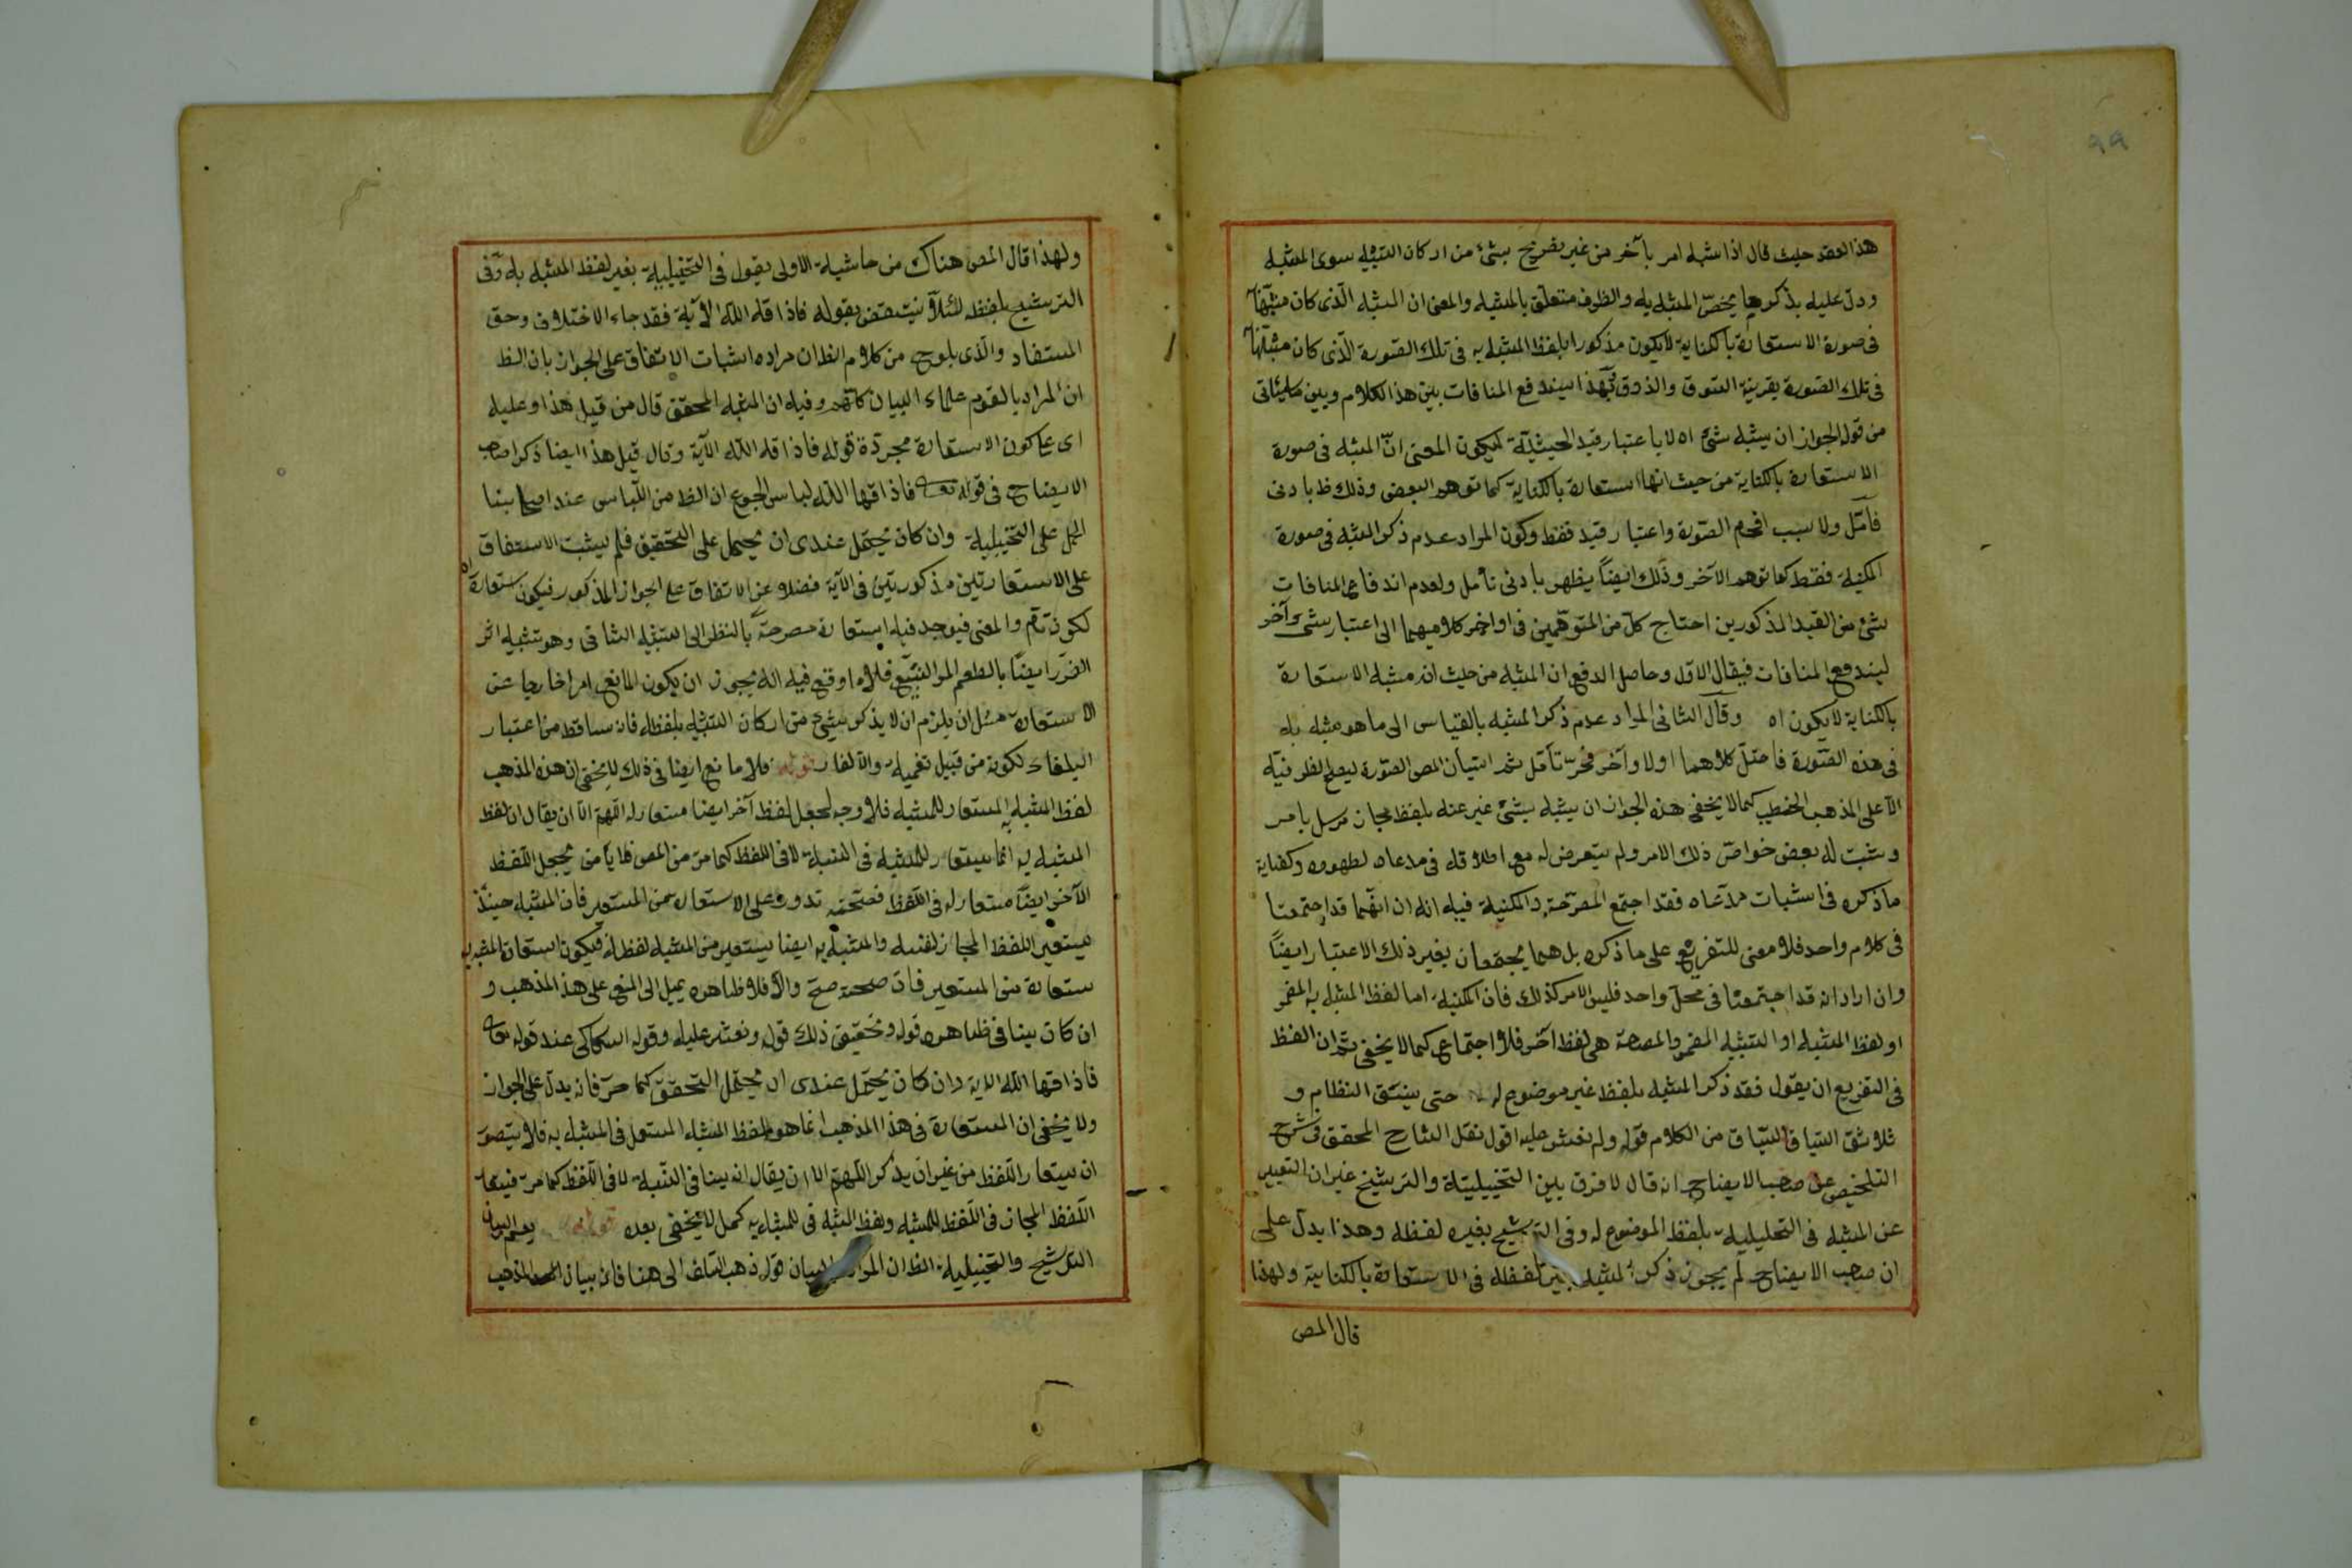 ٩٩
هذا العقد حيث قال اذا شبه امر بآخر من غير تصريح بشئ من اركان التشبيه سوى المشبه
ودل عليه بذكر ما يخص المشبه به والظرف متعلق بالمشبه والمعنى ان المشبه الذى كان مشبها
فى صورة الاستعارة بالكناية لا يكون مذكورا بلفظ المشبه به فى تلك الصورة الذى كان مشبها
فى تلك الصورة بقرينة السوق والذوق فبهذا يندفع المنافات بين هذا الكلام وبين ما يأتى
من قوله الجواز ان يشبه شئ اه لا باعتبار قيد الحيثية ليكون المعنى ان المشبه فى صورة
الاستعارة بالكناية من حيث انها استعارة بالكناية كما توهم البعض وذلك ظ بادنى
تأمل ولا سبب اقحم الصورة واعتبار قيد فقط وكون المراد عدم ذكر المشبه فى صورة
المكنية فقط كما توهم الآخر وذلك ايضا يظهر بادنى تأمل ولعدم اندفاع المنافات
بشئ من القيد المذكورين احتاج كل من المتوهمين فى اواخر كلاميهما الى اعتبار شئ آخر
ليندفع المنافات فيقال الاول وحاصل الدفع ان المشبه من حيث انه مشبه الاستعارة
بالكناية لا يكون اه وقال الثانى المراد عدم ذكر المشبه بالقياس الى ما هو مشبه به
فى هذه الصورة فاختل كلاهما اولا وآخر تأمل ثم اتيان المص الصورة ليصح الظرفية
الا على المذهب الخطيب كما لا يخفى هذه الجواز ان يشبه بشئ غير عنه بلفظ مجاز مرسل بامر
ويثبت له بعض خواص ذلك الامر ولم يتعرض له مع اطلاقه فى مدعاه لظهوره وكفاية
ما ذكره فى اثبات مدعاه فقد اجتمع المصرحة والمكنية فيه انه ان انهما قد اجتمعتا
فى كلام واحد فلا معنى للتفريع على ما ذكره بل هما يجتمعان بغير ذلك الاعتبار ايضا
وان اراد انه قد اجتمعتا فى محل واحد فليس الامر كذلك فان المكنية اما لفظ المشبه به المضمر
او لفظ المشبه او التشبيه المضمر والمصرحة هى لفظ آخر فلا اجتماع كما لا يخفى ثم ان الظ
فى التفريع ان يقول فقد ذكر المشبه بلفظ غير موضوع له حتى ينسق النظام و
السياق من الكلام قوله ولم نعثر عليه اقول نقل الشارح المحقق فى شرح
التلخيص عن صاحب الايضاح انه قال لا فرق بين التخييلية والترشيح غير ان التعبير
عن المشبه فى التخييلية بلفظ الموضوع له وفى الترشيح بغيره لفظه وهذا يدل على
ان صاحب الايضاح لم يجوز ذكر المشبه بغير لفظه فى الاستعارة بالكناية ولهذا
قال المص
ولهذا قال المص هناك من حاشية الاولى يقول فى التخييلية بغير لفظ المشبه به وفى
الترشيح بلفظه لئلا ينتقض بقوله فاذاقه الله الآية فقد جاء الاختلاف وحق
المستفاد والذى يلوح من كلام الظ ان مراده اثبات الاتفاق على الجواز بان الظ
ان المراد بالقوم علماء البيان وفيه ان المشبه المحقق قال من قبل هذا وعليه
اى كون الاستعارة مجردة قوله فاذاقه الله الآية وقال قبل هذا ايضا ذكر صاحب
الايضاح فى قوله تعالى فاذاقها الله لباس الجوع ان الظ من اللباس عند اصحابنا
الحمل على التخييلية وان كان يحتمل عندى ان يحمل على التحقيق فلم يثبت الاتفاق
على الاستعارتين مذكورتين فى الآية فضلا عن الاتفاق على الجواز المذكور فيكون استعارة
لكون والمعنى فيوجد فيه استعارة مصرحة بالنظر الى التشبيه الثانى وهو تشبيه اثر
الضرر ايضا بالطعم المر البشع فلا ما وقع فيه انه يجوز ان يكون المانع امرا خارجا عن
الاستعارة مثل ان يلزم ان لا يذكر شئ من اركان التشبيه بلفظه فانه ساقط من اعتبار
البلغاء لكونه من قبيل تعمية والالغاز قوله فلا مانع ايضا فى ذلك لا يخفى ان هذه المذهب
لفظ المشبه به المستعار للمشبه فلا وجه لجعل لفظ آخر ايضا مستعار له اللهم الا ان يقال ان لفظ
المشبه به انما يستعار للمشبه فى النسبة لا فى اللفظ كما مر من المص فلا يأ من يجعل اللفظ
الآخر ايضا مستعار له فى اللفظ فصحته تدور على الاستعارة من المستعير فان المشبه حينئذ
يستعير اللفظ المجاز لنفسه والمشبه به ايضا يستعير من المشبه لفظه فيكون استعارة المشبه به
استعارة من المستعير فان صحته صح والا فلا ظاهره يميل الى المنع على هذا المذهب و
ان كان ينافى ظاهره قوله وتحقيق ذلك قوله ونعثر عليه وقوله السكاكى عند قوله تعالى
فاذاقها الله الاية وان كان يحتمل عندى ان يحتمل التحقق كما مر فانه يدل على الجواز
ولا يخفى ان المستعارة فى هذا المذهب انما هو لفظ المشبه المستعمل فى المشبه به فلا يتصور
ان يستعار اللفظ من غير ان يذكر اللهم الا ان يقال انه ينافى النسبة لا فى اللفظ كما مر
اللفظ المجاز فى اللفظ للمشبه ولفظ المشبه فى للمشبه به كما لا يخفى بعده قوله يعم البيان
الترشيح والتخييلية الظ ان المراد البيان قوله ذهب السلف الى هنا فانه بيان المذهب